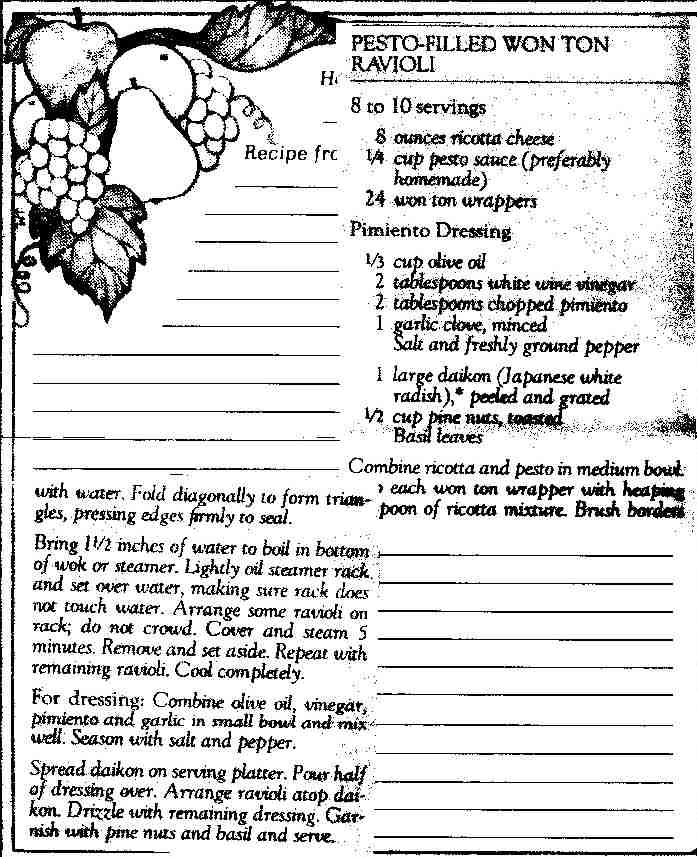 PESTO-FILLED WON TON
RAVIOLI
H
Recipe fro
8 to 10 servings
8 ounces ricotta cheese
1/4 cup pesto sauce (preferably
homemade)
24 won ton wrappers
Pimiento Dressing
1/3 cup olive oil
2 tablespoons white wine vinegar
2 tablespoons chopped pimiento
1 garlic clove, minced
Salt and freshly ground pepper
1 large daikon (Japanese white
radish),* peeled and grated
1/2 cup pine nuts, toasted
Basil leaves
Combine ricotta and pesto in medium bowl.
each won ton wrapper with heaping
poon of ricotta mixture. Brush borders
with water. Fold diagonally to form trian-
gles, pressing edges firmly to seal.
Bring 1 1/2 inches of water to boil in bottom
of wok or steamer. Lightly oil steamer rack
and set over water, making sure rack does
not touch water. Arrange some ravioli on
rack; do not crowd. Cover and steam 5
minutes. Remove and set aside. Repeat with
remaining ravioli. Cool completely.
For dressing: Combine olive oil, vinegar,
pimiento and garlic in small bowl and mix
well. Season with salt and pepper.
Spread daikon on serving platter. Pour half
of dressing over. Arrange ravioli atop dai-
kon. Drizzle with remaining dressing. Gar-
nish with pine nuts and basil and serve.